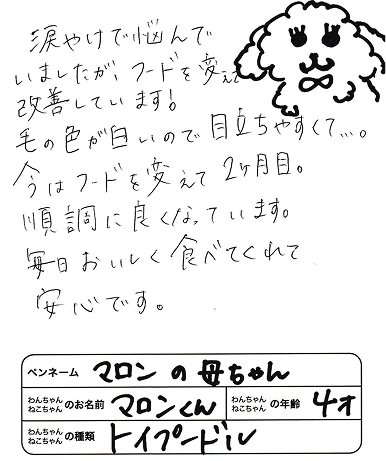 涙やけで悩んで
いましたが、フードを変えて
改善しています!
毛の色が白いので目立ちやすくて…。
今はフードを変えて2ヶ月目。
順調に良くなっています。
毎日おいしく食べてくれて
安心です。
ペンネーム マロンの母ちゃん
わんちゃん ねこちゃん のお名前 マロンくん わんちゃん ねこちゃん の年齢 4才
わんちゃん ねこちゃん の種類 トイプードル